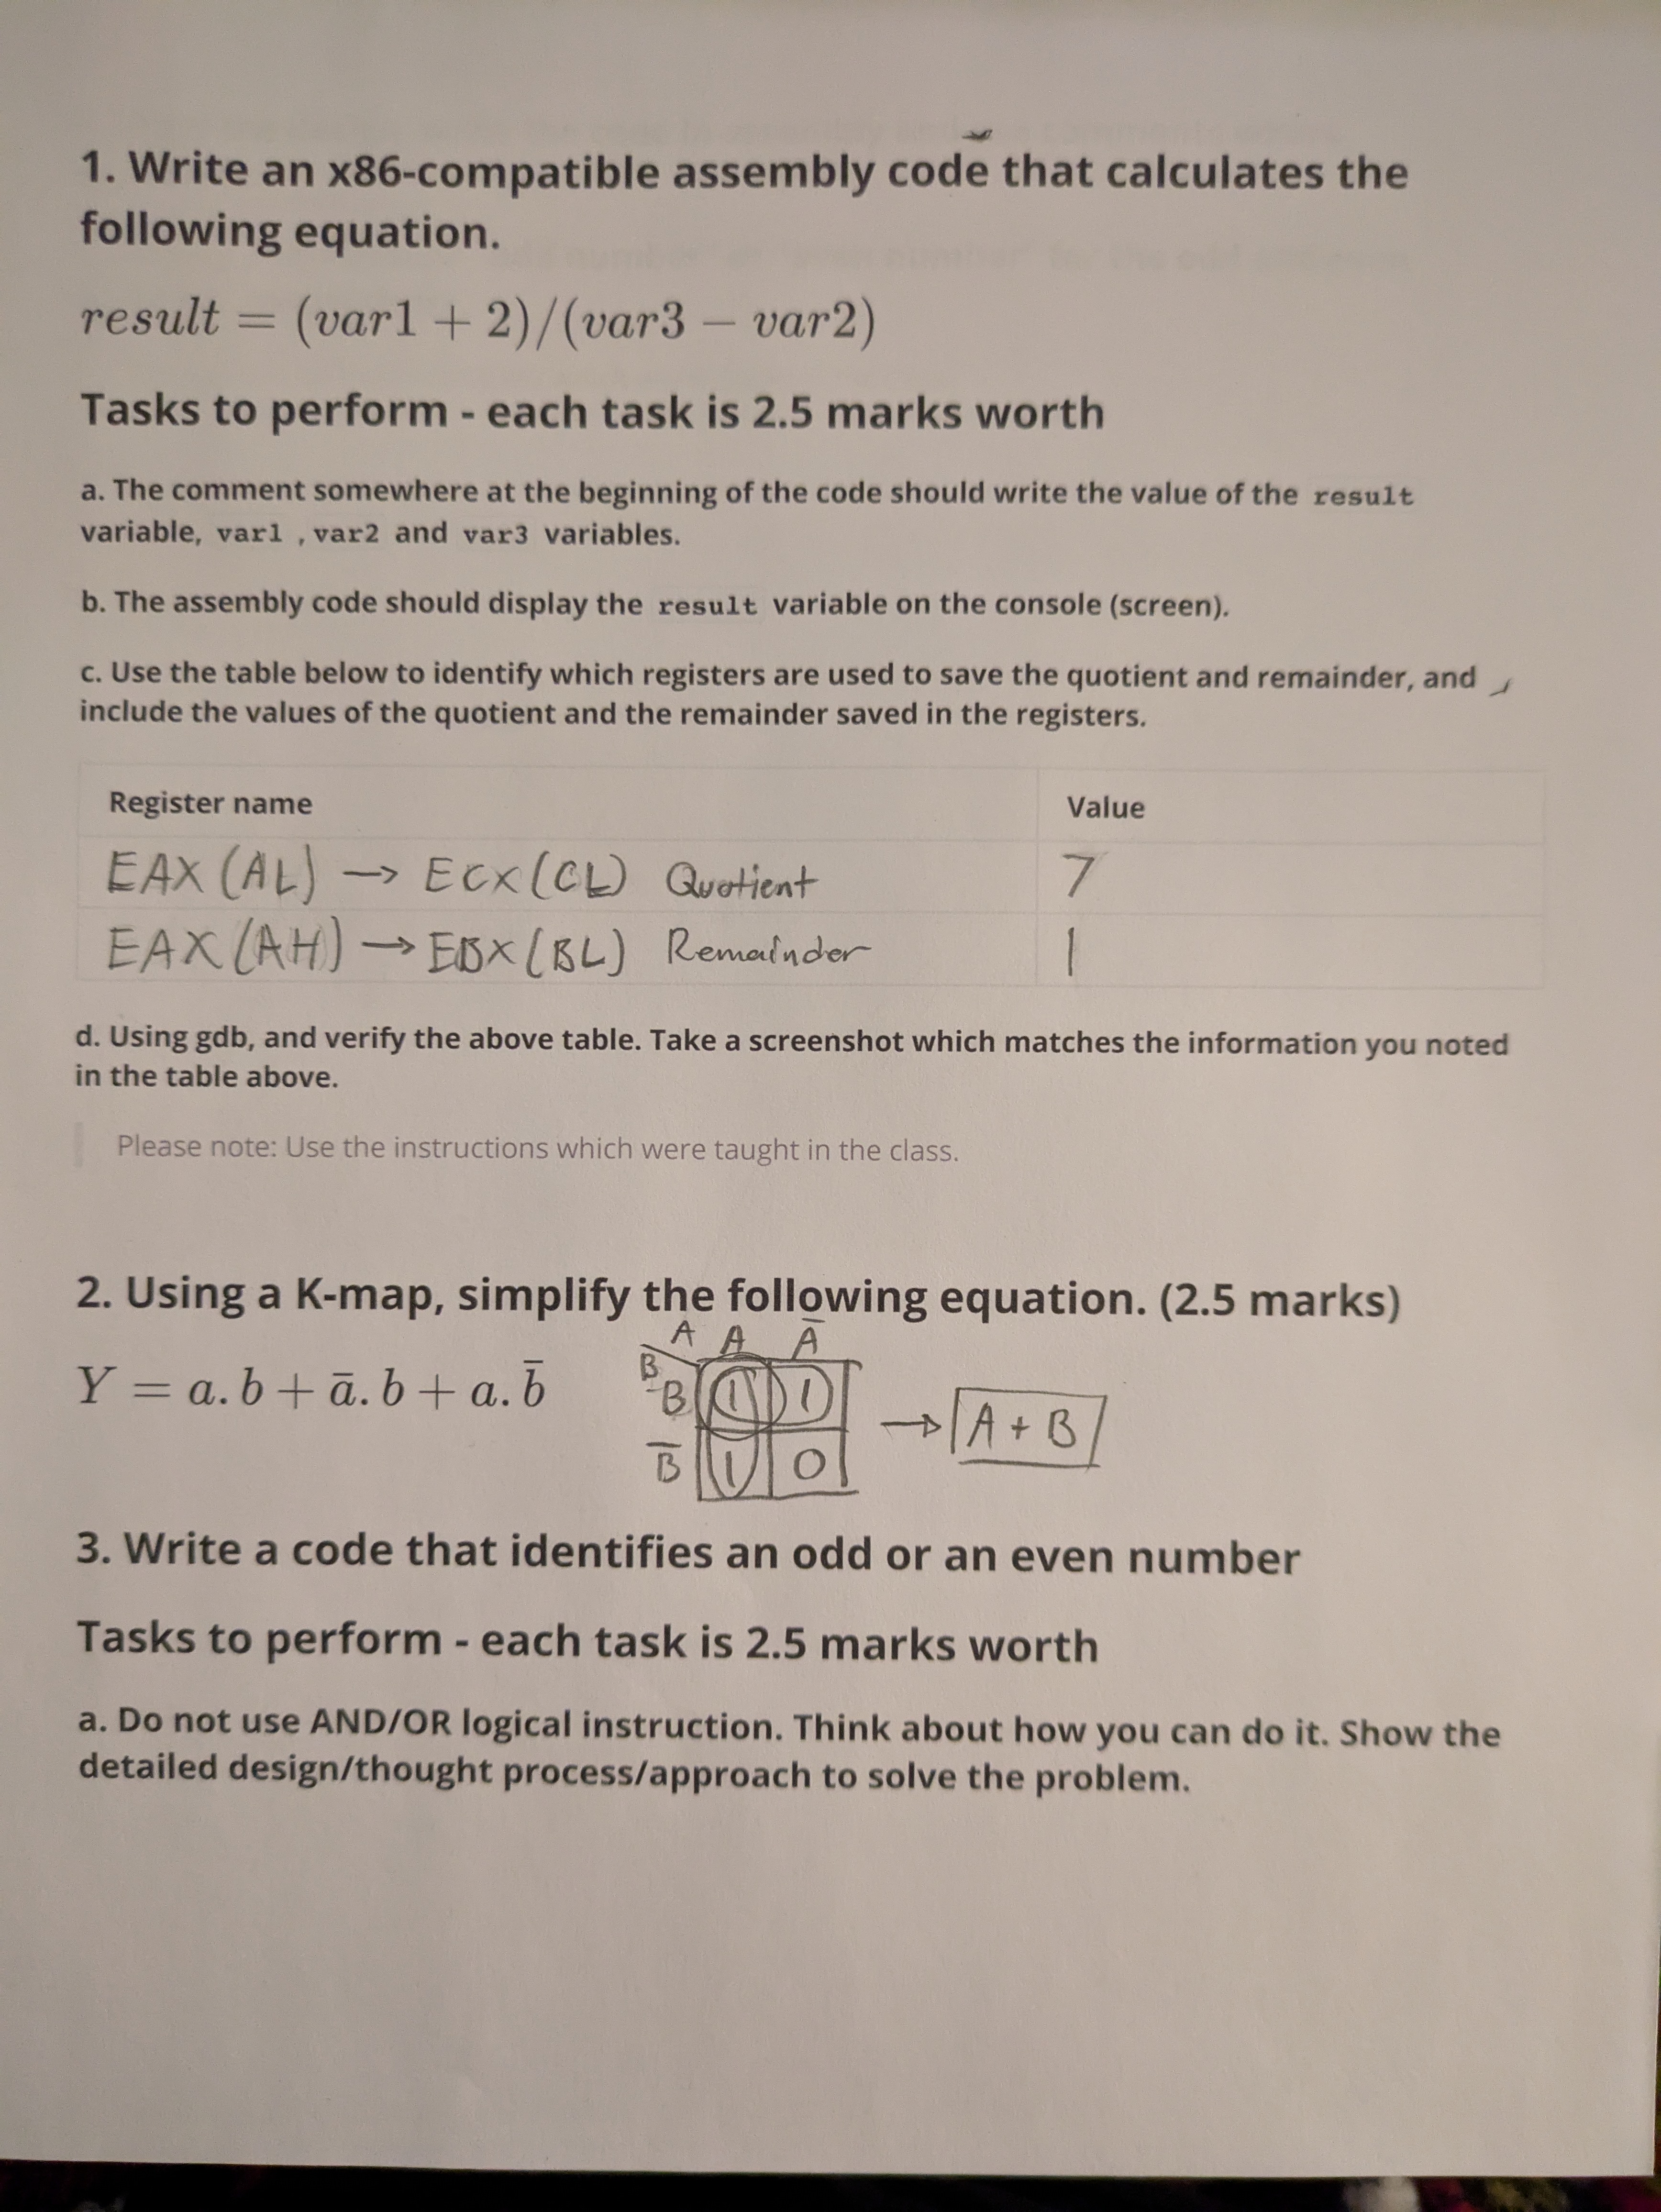 1. Write an x86-compatible assembly code that calculates the
following equation.
result = (var1 + 2)/(var3 − var2)
Tasks to perform - each task is 2.5 marks worth
a. The comment somewhere at the beginning of the code should write the value of the result
variable, var1 , var2 and var3 variables.
b. The assembly code should display the result variable on the console (screen).
c. Use the table below to identify which registers are used to save the quotient and remainder, and
include the values of the quotient and the remainder saved in the registers.
Register name Value
EAX (AL) → ECX (CL) Quotient 7
EAX (AH) → EBX (BL) Remainder 1
d. Using gdb, and verify the above table. Take a screenshot which matches the information you noted
in the table above.
Please note: Use the instructions which were taught in the class.
2. Using a K-map, simplify the following equation. (2.5 marks)
A A Ā
B
Y = a. b + ā. b + a. b̄
B 1 1
→ A + B
B̄ 1 0
3. Write a code that identifies an odd or an even number
Tasks to perform - each task is 2.5 marks worth
a. Do not use AND/OR logical instruction. Think about how you can do it. Show the
detailed design/thought process/approach to solve the problem.